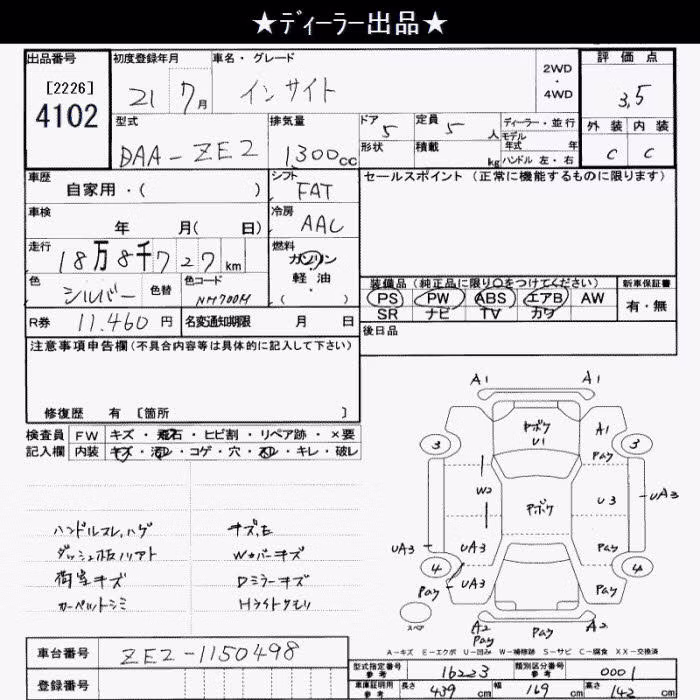 ★ディーラー出品★
出品番号 初度登録年月 車名・グレード 2WD・4WD 評価点
[2226] 21 7月 インサイト 3.5
4102 外装 内装
型式 排気量 ドア 5 定員 5人 ディーラー・並行 C C
DAA-ZE2 1,300cc 形状 積載 kg モデル年式 年
ハンドル 左・右
車歴 シフト セールスポイント (正常に機能するものに限ります)
自家用・( ) FAT
車検 冷房
年 月( 日) AAC
走行 燃料
18万8千727km ガソリン
軽油
・( )
色 シルバー 色替 色コード NH700M 装備品 (純正品に限り○をつけてください) 新車保証書
PS PW ABS エアB AW 有・無
SR ナビ TV カワ
R券 11.460円 名変通知期限 月 日 後日品
注意事項申告欄 (不具合内容等は具体的に記入して下さい)
修復歴 有 [箇所 ]
検査員 FW キズ・飛石・ヒビ割・リペア跡・×要
記入欄 内装 キズ・汚レ・コゲ・穴・スレ・キレ・破レ
ハンドルスレ,ハゲ
ダッシュ板ソリアト
荷室キズ
カーペットシミ
Wカバーキズ
Dミラーキズ
Hライトクモリ
A1 A1
ヤボケ
U1
A1
3 3
Pay
W2 Pボケ U3 UA3
UA3 UA3 Pay
4 UA3 4
Pay Pay
スペア
A2 A2
Pay Pay
A-キズ E-エクボ U-凹み W-補修跡 S-サビ C-腐食 XX-交換済
車台番号 ZE2-1150498
登録番号
型式指定番号 参考 16223 類別区分番号 参考 0001
車庫証明用 参考 長さ 439cm 幅 169cm 高さ 142cm